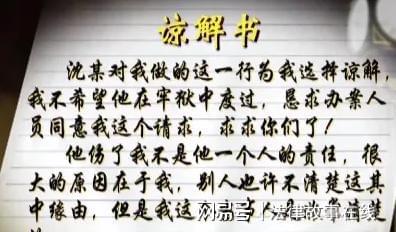 谅解书
沈某对我做的这一行为我选择谅解，
我不希望他在牢狱中度过，恳求办案人
员同意我这个请求，求求你们了！
他伤了我不是他一个人的责任，很
大的原因在于我，别人也许不清楚这其
中缘由，但是我这
搜狐号@法律故事在线